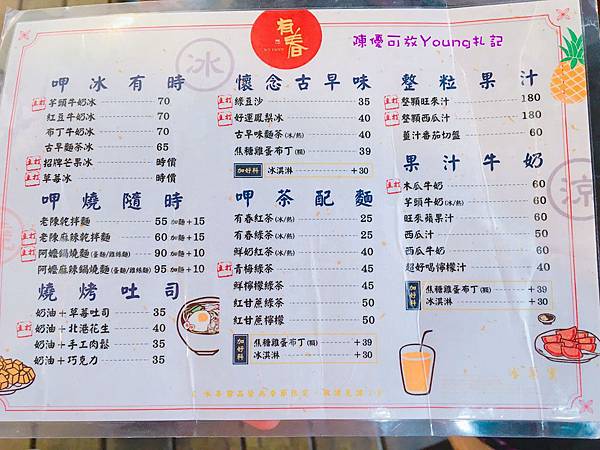 有春
陳優可放Young札記
冰
呷冰有時
主打 芋頭牛奶冰 70
紅豆牛奶冰 70
布丁牛奶冰 70
古早麵茶冰 65
主打 招牌芒果冰 時價
主打 草莓冰 時價
呷燒隨時
老陳乾拌麵 55 加麵+15
主打 老陳麻辣乾拌麵 60 加麵+15
主打 阿嬤鍋燒麵(蛋麵/雞絲麵) 90 加麵+10
阿嬤麻辣鍋燒麵(蛋麵/雞絲麵) 95 加麵+10
燒烤吐司
奶油+草莓吐司 35
主打 奶油+北港花生 40
奶油+手工肉鬆 35
奶油+巧克力 35
懷念古早味
主打 綠豆沙 35
主打 好運鳳梨冰 40
古早味麵茶(冰/熱) 40
焦糖雞蛋布丁(顆) 39
加好料 冰淇淋 +30
呷茶配麵
有春紅茶(冰/熱) 25
有春綠茶(冰/熱) 25
鮮奶紅茶(冰/熱) 40
主打 青梅綠茶 45
鮮檸檬綠茶 45
紅甘蔗綠茶 50
紅甘蔗檸檬 50
加好料 焦糖雞蛋布丁(顆) +39
冰淇淋 +30
整粒果汁
主打 整顆旺來汁 180
主打 整顆西瓜汁 180
薑汁番茄切盤 60
果汁牛奶
主打 木瓜牛奶 60
芋頭牛奶(冰/熱) 60
旺來蘋果汁 60
西瓜汁 50
西瓜牛奶 60
超好喝檸檬汁 40
加好料 焦糖雞蛋布丁(顆) +39
冰淇淋 +30
涼